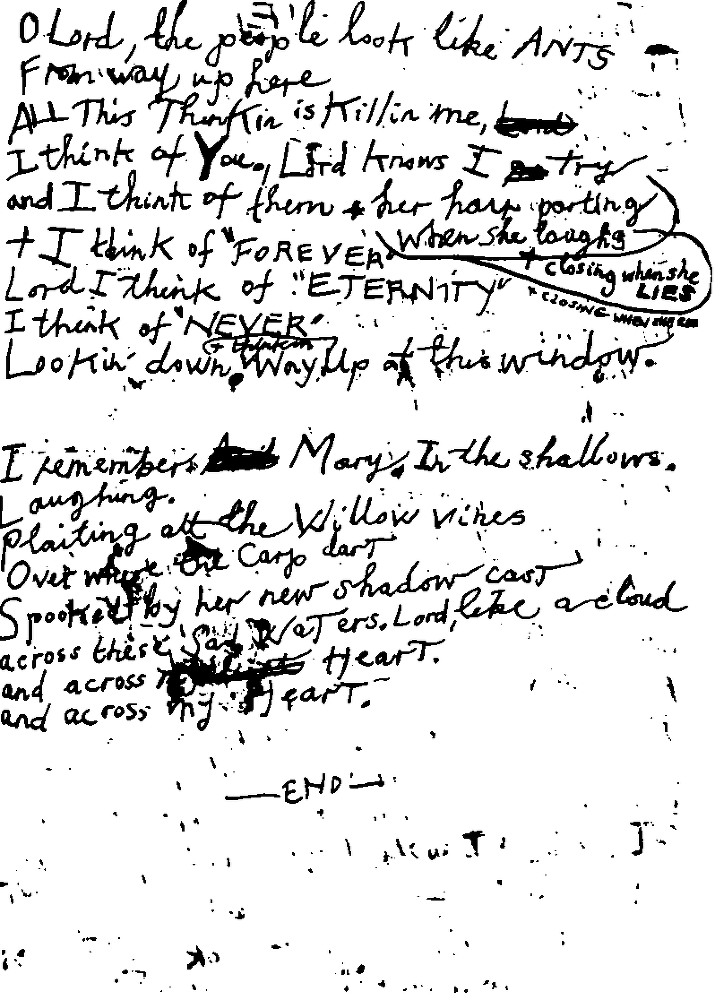 O Lord, the people look like ANTS
From way up here
ALL This Thinkin is Killin me,
I think of You., Lord knows I try
and I think of them + her hair parting
when she laughs
+ closing when she
LIES
+ I think of "FOREVER"
Lord I think of "ETERNITY"
+ CLOSING WHEN SHE
I think of "NEVER"
+ thinkin
Lookin' down. Way Up at this window.
I remembers Mary. In the shallows.
Laughing.
Plaiting all the Willow vines
Over where the Carp dart
Spooked by her new shadow cast
across these Sad Waters. Lord, like a cloud
and across HearT.
and across my HearT.
—END—